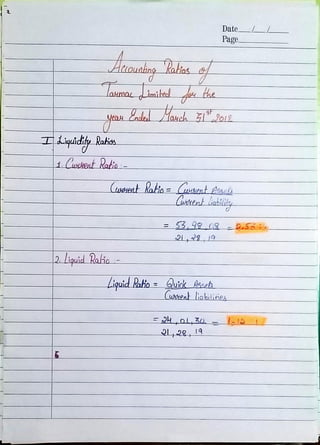 Date / /
Page
Accounting Ratios of
Tarmac Limited for the
year Ended March 31st 2018
I Liquidity Ratios
1. Current Ratio :-
Current Ratio = Current Assets
Current liability
= 53,98,08 =
21,28,19
2. Liquid Ratio :-
Liquid Ratio = Quick Assets
Current liabilities
= 24,01,30 =
21,28,19